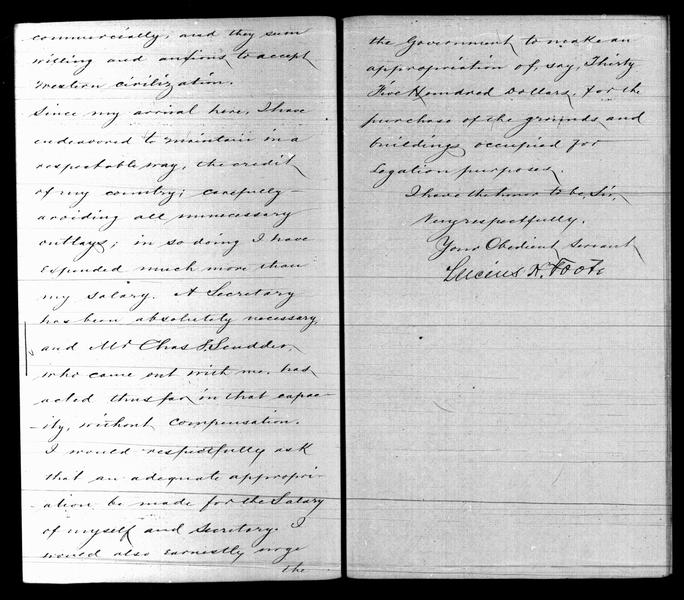 commercially, and they seem
willing and anxious to accept
western civilization.
Since my arrival here, I have
endeavored to maintain in a
respectable way, the credit
of my country; carefully
avoiding all unnecessary
outlays; in so doing I have
expended much more than
my salary. A Secretary
has been absolutely necessary,
and Mr Chas L. Scudder,
who came out with me, has
acted thus far in that capac-
-ity, without compensation.
I would respectfully ask
that an adequate appropri-
-ation be made for the Salary
of myself and Secretary. I
would also earnestly urge
the
the Government to make an
appropriation of, say, Thirty
Five Hundred Dollars, for the
purchase of the grounds and
buildings occupied for
Legation purposes.
I have the honor to be, Sir,
Very respectfully,
Your Obedient Servant
Lucius H. Foote